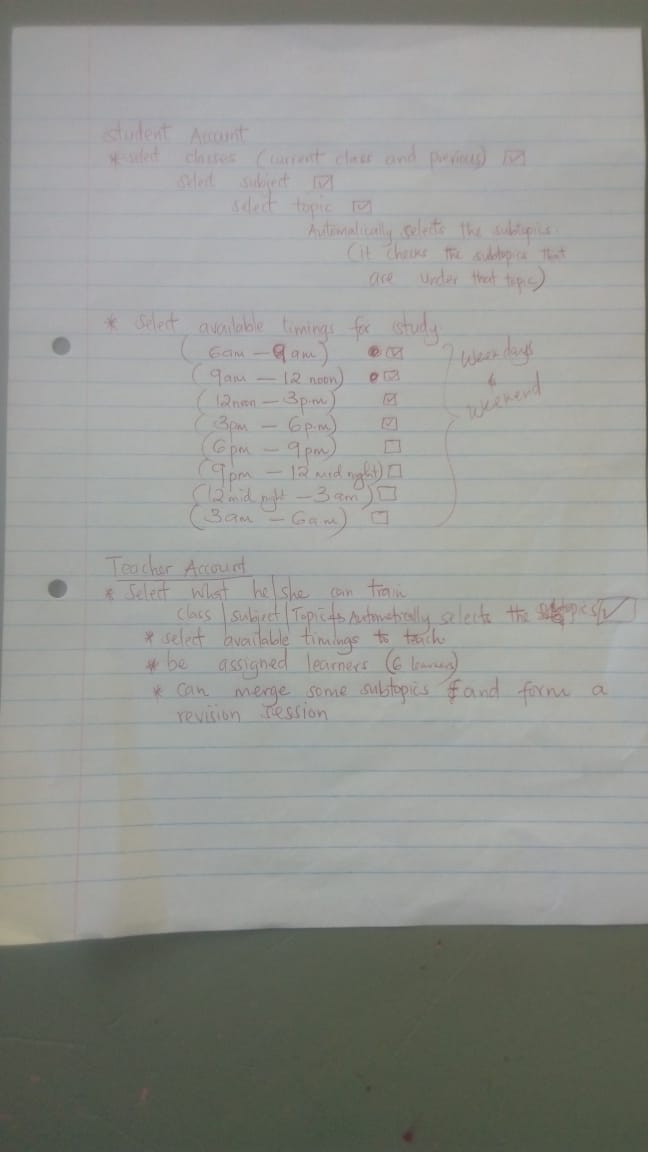 student Account
* select classes (current class and previous) ☑
select subject ☑
select topic ☑
Automatically selects the subtopics
(it checks the subtopics that
are under that topic)
* Select available timings for study
(6am — 9am) ☑
(9am — 12 noon) ☑
(12noon — 3p.m) ☑
(3pm — 6p.m) ☑
(6pm — 9pm) ☐
(9pm — 12 mid night) ☐
(12 mid night — 3am) ☐
(3am — 6am) ☐
Week days
&
Weekend
Teacher Account
* Select what he/she can train
class / subject / Topic Automatically selects the topics ☑
* select available timings to teach
* be assigned learners (6 learners)
* can merge some subtopics and form a
revision session